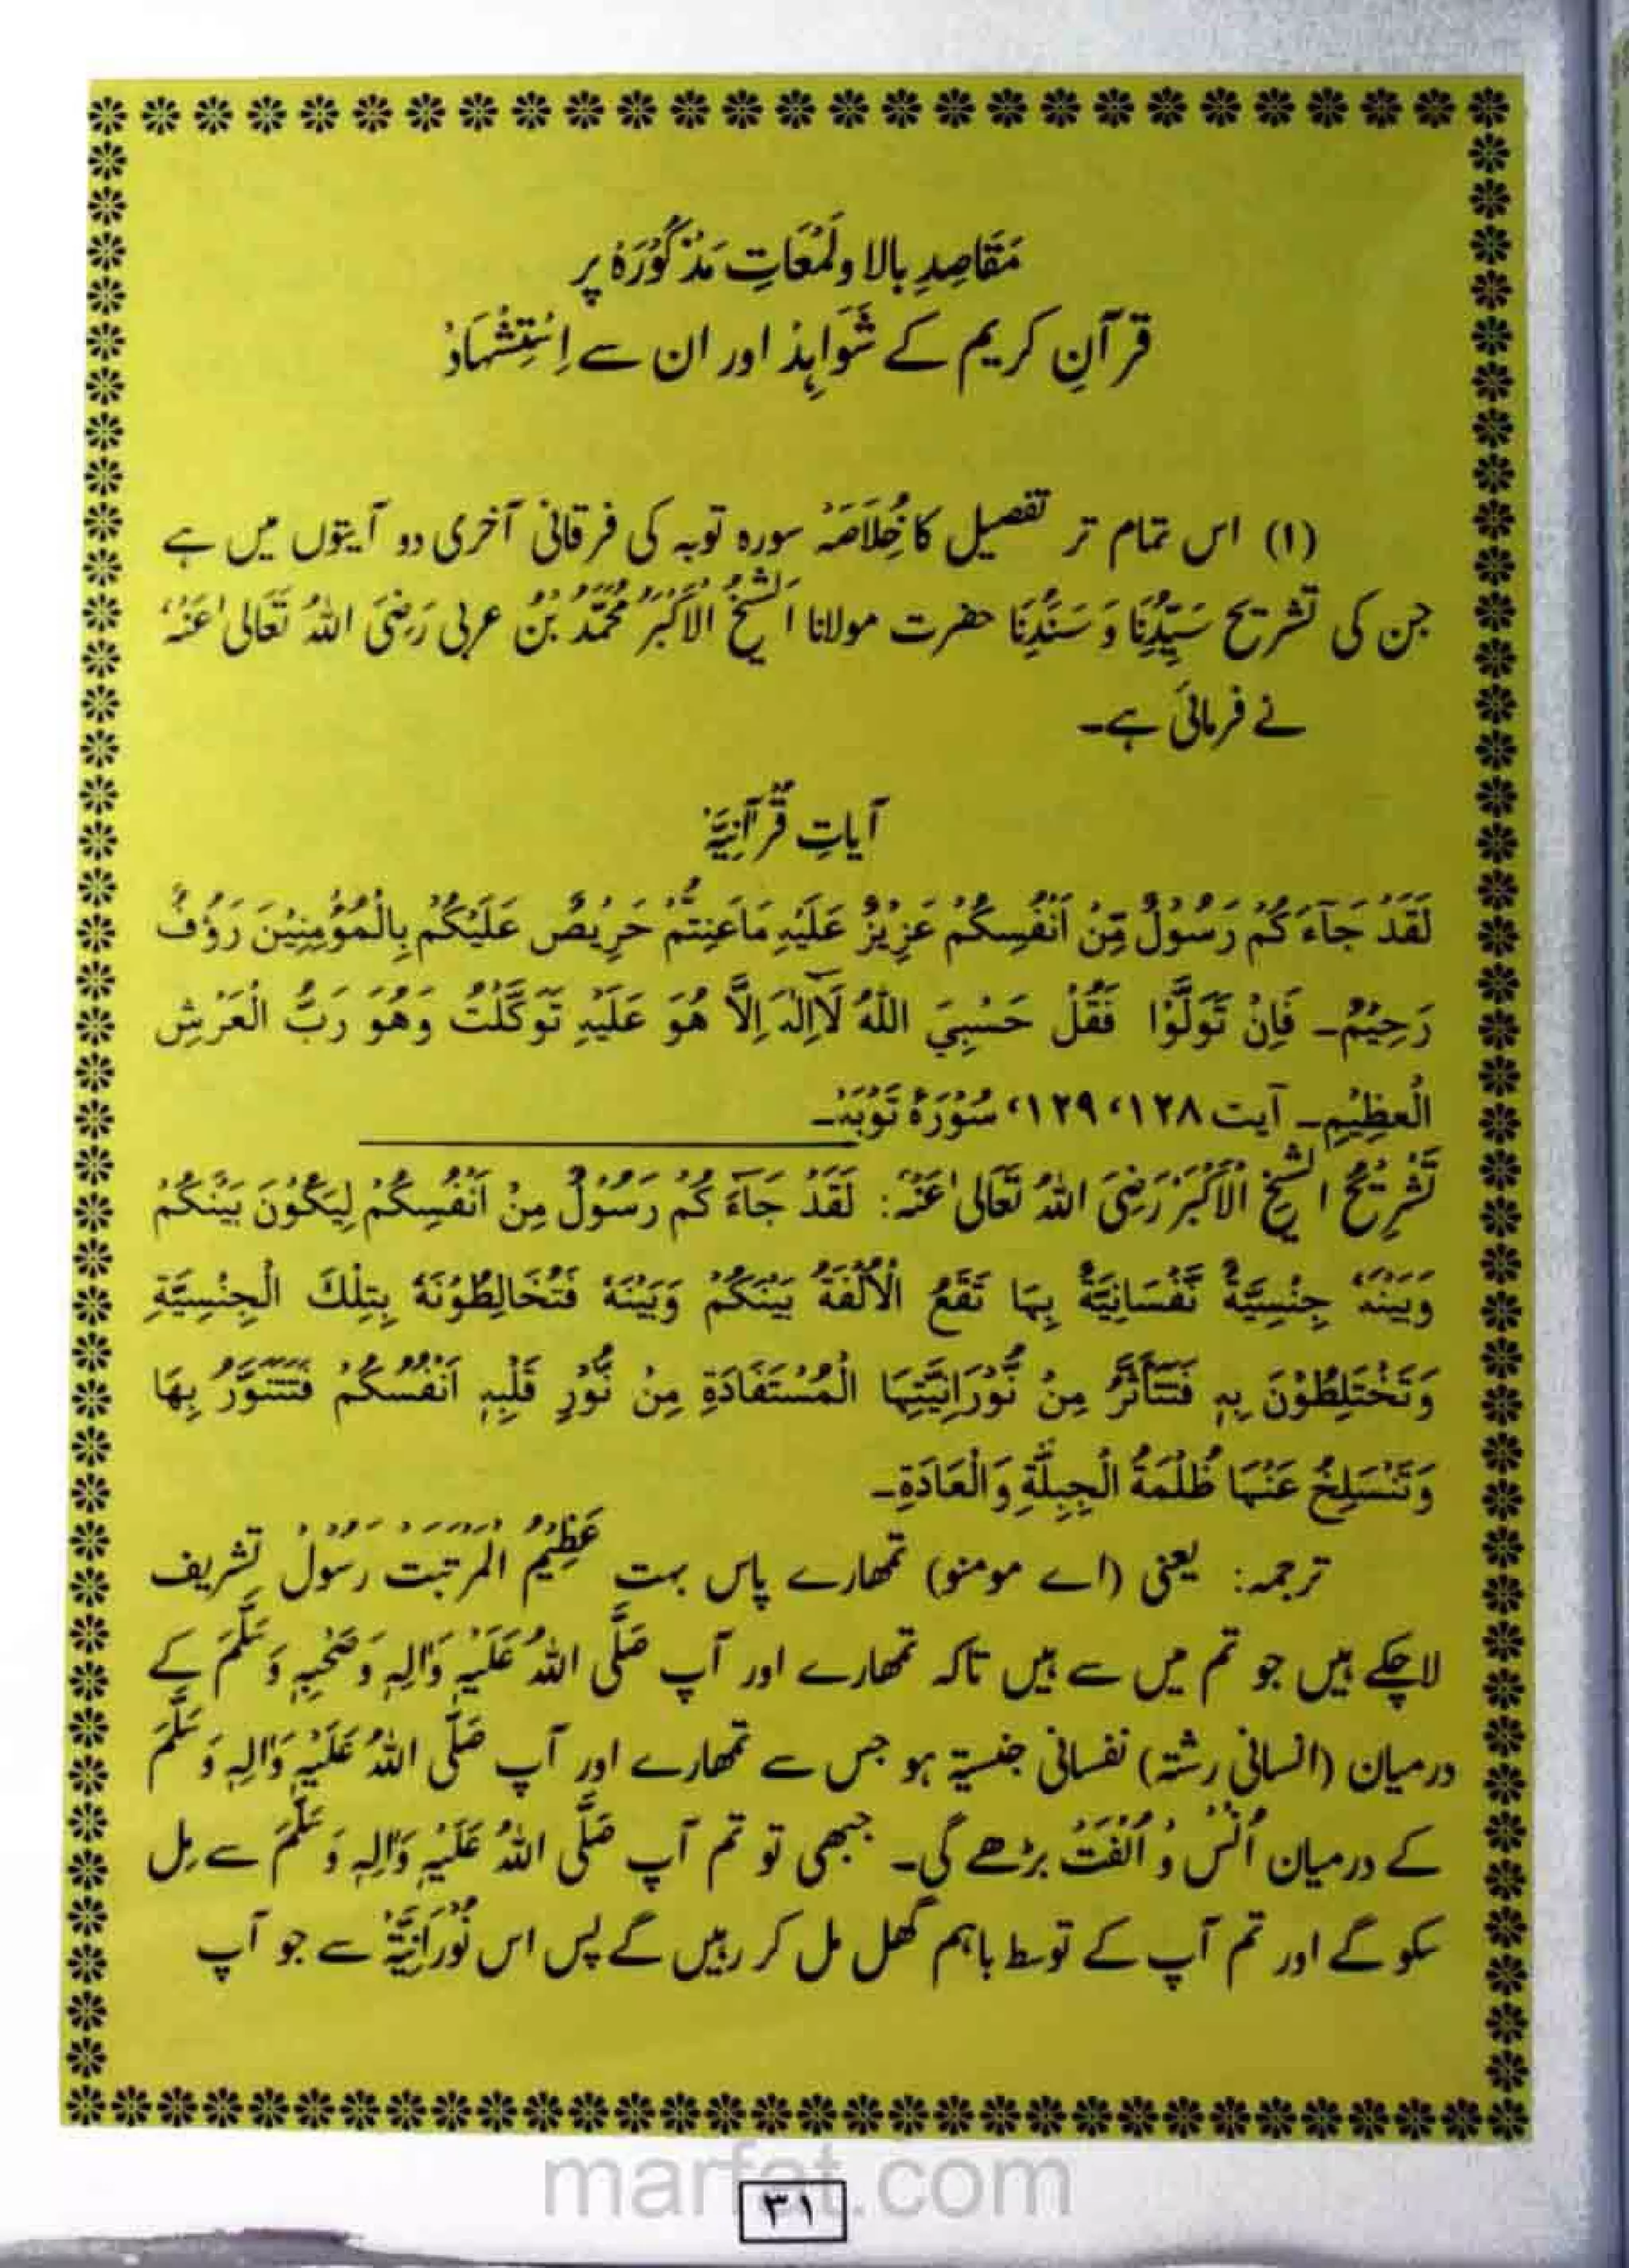 مَقَاصِدِ بالا و لَمْعَاتِ مَذْکُوْرَہْ پر
قرآنِ کریم کے شَوَاہِدْ اور ان سے اِسْتِشْہَادْ
(۱) اس تمام تر تفصیل کا خُلَاصَہْ سورہ توبہ کی فرقانی آخری دو آیتوں میں ہے
جن کی تشریح سَیِّدُنَا وَ سَنَدُنَا حضرت مولانا اَلشَّیْخُ الْاَکْبَرُ مُحَمَّدُ بْنُ عربی رَضِیَ اللّٰہُ تَعَالیٰ عَنْہُ
نے فرمائی ہے۔
آیاتِ قُرْآنِیَّہْ
لَقَدْ جَآءَ کُمْ رَسُوْلٌ مِّنْ اَنْفُسِکُمْ عَزِیْزٌ عَلَیْہِ مَاعَنِتُّمْ حَرِیْصٌ عَلَیْکُمْ بِالْمُؤْمِنِیْنَ رَؤُفٌ
رَحِیْمٌ۔ فَاِنْ تَوَلَّوْا فَقُلْ حَسْبِیَ اللّٰہُ لَآاِلٰہَ اِلَّا ھُوَ عَلَیْہِ تَوَکَّلْتُ وَھُوَ رَبُّ الْعَرْشِ
الْعظِیْمِ۔ آیت ۱۲۸، ۱۲۹، سُوْرَۃُ تَوْبَہْ۔
تَشْرِیْحُ الشَّیْخِ الْاَکْبَرْ رَضِیَ اللّٰہُ تَعَالیٰ عَنْہُ: لَقَدْ جَآءَ کُمْ رَسُوْلٌ مِنْ اَنْفُسِکُمْ لِیَکُوْنَ بَیْنَکُمْ
وَبَیْنَہٗ جِنْسِیَّۃٌ نَّفْسَانِیَّۃٌ بِہَا تَقَعُ الْاُلْفَۃُ بَیْنَکُمْ وَبَیْنَہٗ فَتُخَالِطُوْنَہٗ بِتِلْکَ الْجِنْسِیَّۃِ
وَتَخْتَلِطُوْنَ بِہٖ فَتَتَأَثَّرُ مِنْ نُّوْرَانِیَّتِہَا الْمُسْتَفَادَۃِ مِنْ نُّوْرِ قَلْبِہٖ اَنْفُسُکُمْ فَتَتَنَوَّرُ بِھَا
وَتَنْسَلِخُ عَنْہَا ظُلْمَۃُ الْجِبِلَّۃِ وَالْعَادَۃِ۔
ترجمہ: یعنی (اے مومنو) تمھارے پاس بہت عَظِیْمُ الْمَرْتَبَتْ رَسُوْلْ تشریف
لاچکے ہیں جو تم میں سے ہیں تاکہ تمھارے اور آپ صَلَّی اللّٰہُ عَلَیْہِ وَاٰلِہٖ وَصَحْبِہٖ وَسَلَّمَ کے
درمیان (انسانی رشتہ) نفسانی جنسیۃ ہو جس سے تمھارے اور آپ صَلَّی اللّٰہُ عَلَیْہِ وَاٰلِہٖ وَسَلَّمَ
کے درمیان اُنْسْ وْ اُلْفَتْ بڑھے گی۔ جبھی تو تم آپ صَلَّی اللّٰہُ عَلَیْہِ وَاٰلِہٖ وَسَلَّمَ سے مِل
سکو گے اور تم آپ کے توسط باہم گھل مل کر رہیں گے پس اس نُوْرَانِیَّۃْ سے جو آپ
marfat.com
۳۱